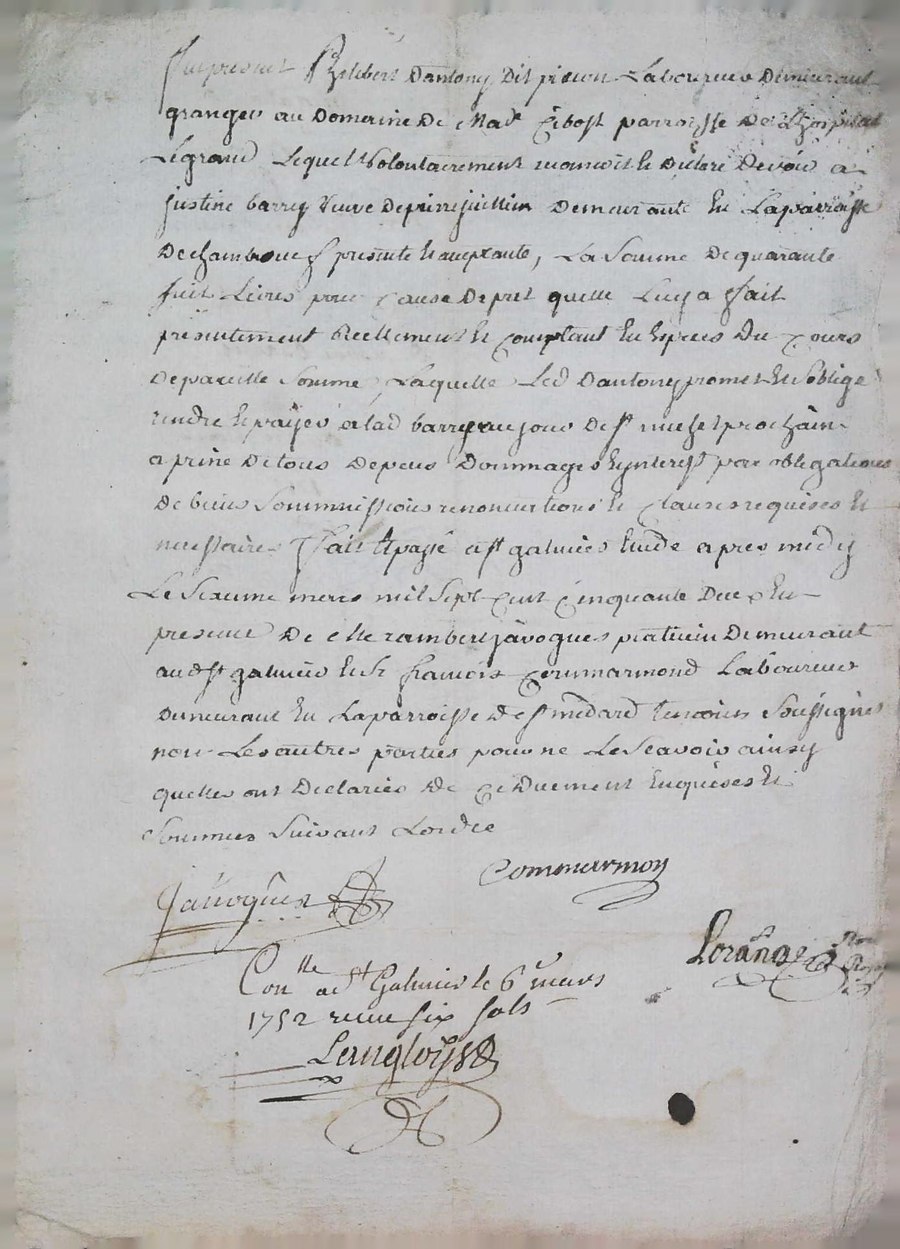 fut present Philibert Dantony Dit picon Laboureur Demeurant
granger au Domeine De Made Cibost parroisse De Lhospital
Legrand Lequel volontairement reconoit et Declare Devoir a
justine barrey veuve Depierre jullien Demeurante En Laparroisse
Dechambeuf presente et aceptante, La Somme De quarante
huit Livres pour Cause De pret quelle Luy a fait
presentement Réellement et Comptant En Especes Du Cours
De pareille Somme, Laquelle Led Dantony promet et Soblige
rendre et payer a lad barrey au jour De st michel prochain
a peine De tous Depens Dommages et jnterest par obligations
De biens Soummissions renonciations et Clauses requises et
necessaires fait et passé a st galmier Etude apres midy
Le Sixieme mars mil Sept Cent Cinquante Deux En
presence De rambert javogues praticien Demeurant
aud st galmier et Sr francois Commarmond Laboureur
Demeurant En Laparroisse De st medard temoins Soussignés
non Les autres parties pour ne Le Scavoir ainsy
quelles ont Declarées De Ce Duement Enquises et
Sommées Suivant Lordre
Javogues
Commarmon
Lorange
Conlle a St Galmier le 6e mars
1752 receu six sols
Langloys